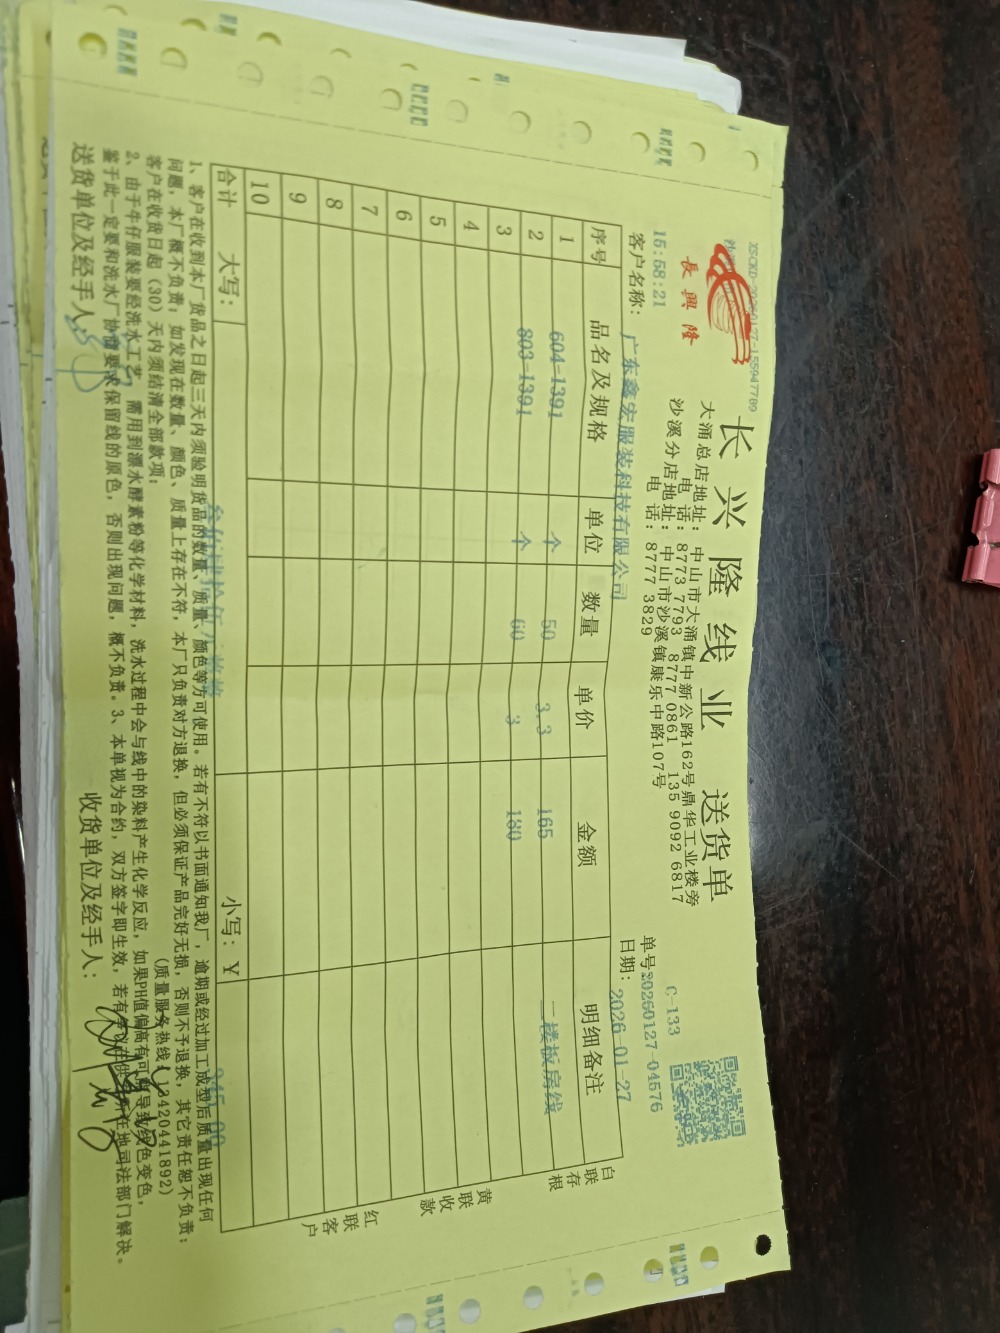 长兴隆线业 送货单
長興隆
大涌总店地址：中山市大涌镇中新公路162号鼎华工业楼旁
电 话：8773 7793 8777 0861 135 9092 6817
沙溪分店地址：中山市沙溪镇康乐中路107号
电 话：8777 3829
C-133
15:58:21
单号20260127-04576
客户名称：广东鑫宏服装科技有限公司
日期：2026-01-27
序号 品名及规格 单位 数量 单价 金额 明细备注
1 604-1391 个 50 3.3 165 二楼板房线
2 803-1391 个 60 3 180
3
4
5
6
7
8
9
10
合计 大写： 小写：￥ 345.00
白联存根
黄联收款
红联客户
1、客户在收到本厂货品之日起三天内须验明货品的数量、质量、颜色等方可使用。若有不符以书面通知我厂，逾期或经过加工成型后质量出现任何
问题，本厂概不负责；如发现在数量、颜色、质量上存在不符，本厂只负责对方退换，但必须保证产品完好无损，否则不予退换，其它责任恕不负责；
客户在收货日起（30）天内须结清全部款项；（质量服务热线：13420441892）
2、由于牛仔服装要经洗水工艺，需用到漂水酵素粉等化学材料，洗水过程中会与线中的染料产生化学反应，如果PH值偏高有可能导致线色变色，
鉴于此一定要和洗水厂协商要求保留线的原色，否则出现问题，概不负责。3、本单视为合约，双方签字即生效，若有争议在供方所在地司法部门解决。
送货单位及经手人： 收货单位及经手人：